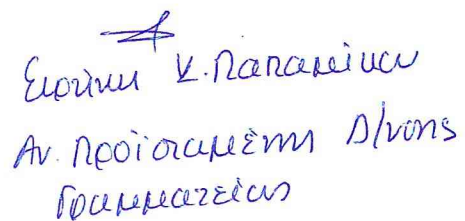 Ειρήνη Κ. Παπαμίκου
Αν. Προϊσταμένη Δ/νσης
Γραμματείας